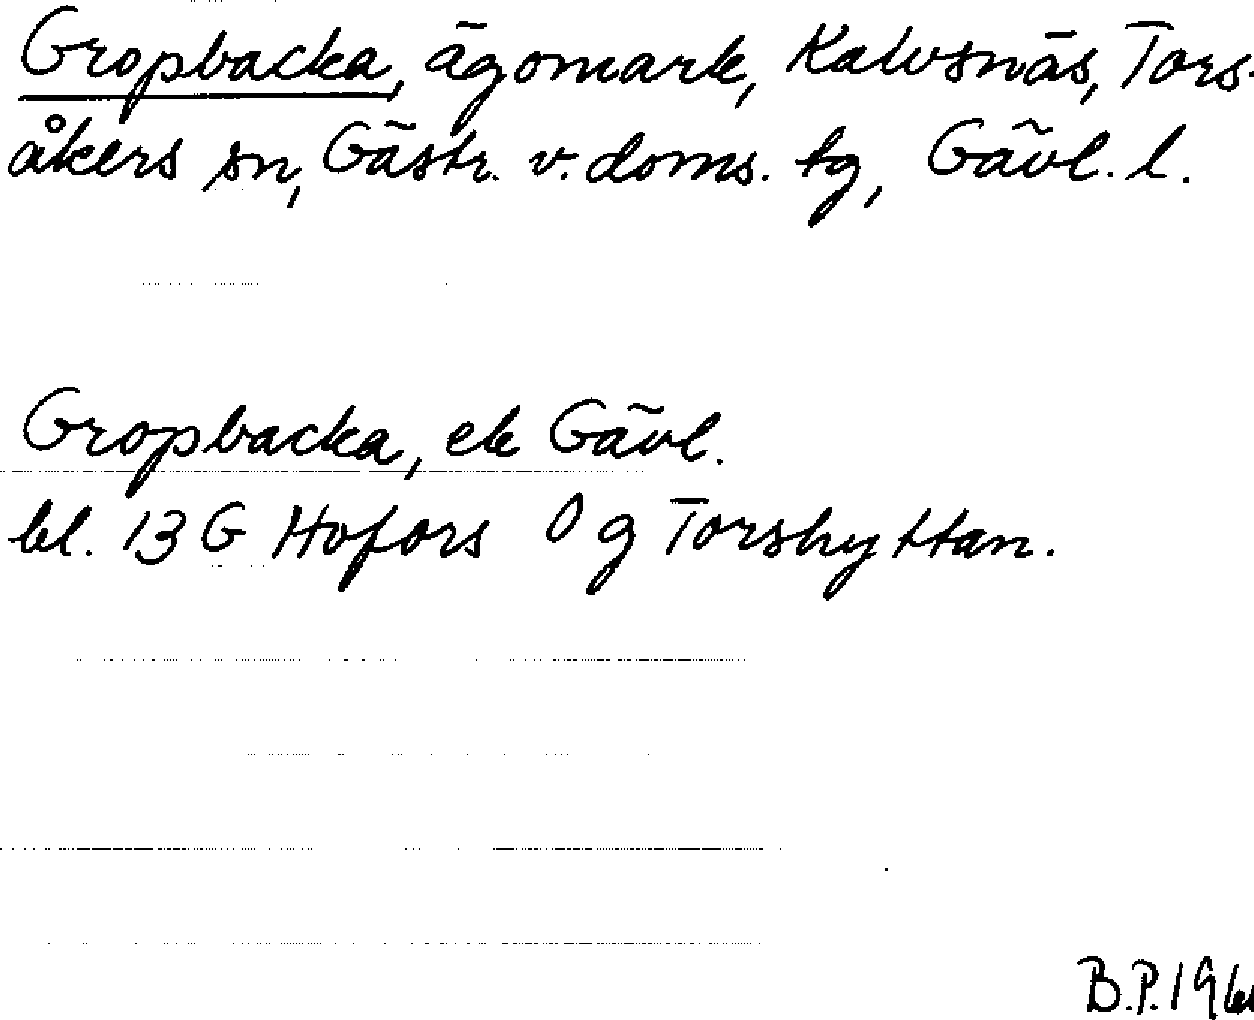 Gropbacka, ägomark, Kalvsnäs, Tors-
åkers sn, Gästr. v. doms. tg, Gävl. l.
Gropbacka, ek Gävl.
bl. 13 G Hofors 0 g Torshyttan.
B.P.